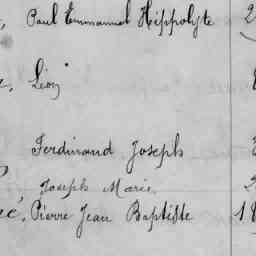 Paul Emmanuel Hippolyte 2
Léon
Ferdinand Joseph
Joseph Marie 2
Pierre Jean Baptiste 18